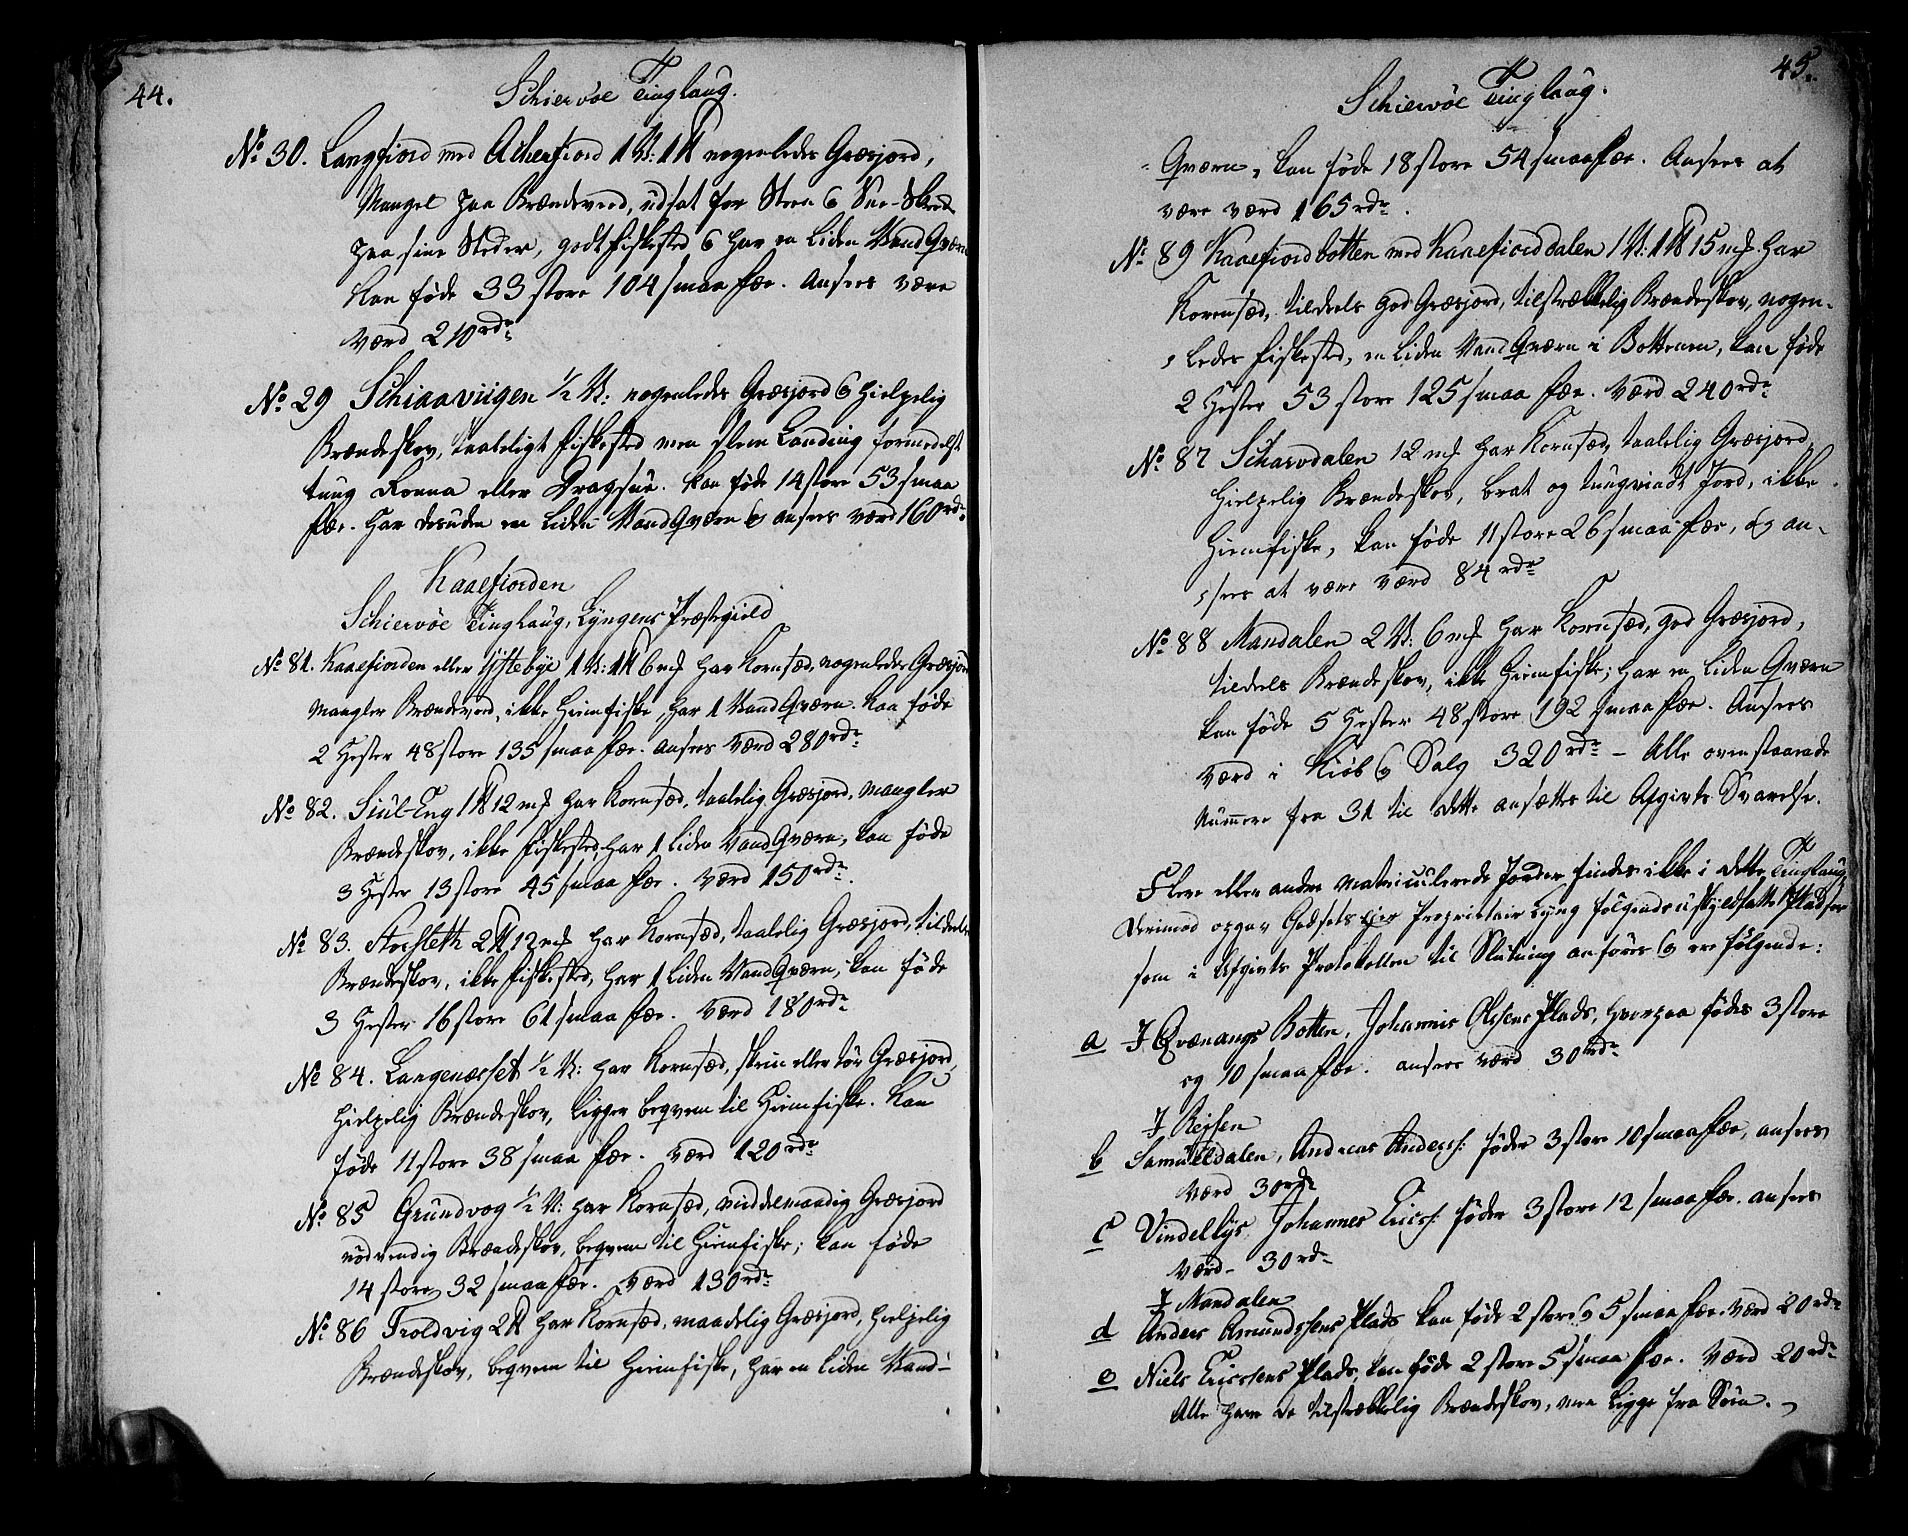 44.
Schiervöe Tinglaug.
No 30. Langfiord med Alkenfiord 1 V: 1 ℔ nogenledes Græsjord,
Mangel paa Brændeved, udsat for Steen & Snee-Skred
paa sine Steder, godt fiskested & har en liden Vand Qværn
kan føde 33 store 104 smaa fæe. ansees være
værd 210 rdr
No 29 Schiaaviigen 1/2 V: nogenledes Græsjord & hielpelig
Brændeskov, taaleligt fiskested men slem Landing formedelst
tung eller Dragsue. kan føde 14 store 53 smaa
fæe. har desuden en liden Vand Qværn & ansees værd 160 rdr.
Kaaefiorden
Schiervöe Tinglaug, Lyngens Præstegield
No 81. Kaaefiorden eller Yttebye 1 V: 1 ℔ 6 mk har Kornsæd, nogenledes Græsjord
mangler Brændeved, ikke Hiemfiske, har 1 Vand Qværn. kan føde
2 Hester 48 store 135 smaa fæe. ansees værd 280 rdr
No 82. Siul-Eng 1 ℔ 12 mk har Kornsæd, taalelig Græsjord, mangler
Brændeskov, ikke fiskested, har 1 liden Vand Qværn, kan føde
3 Hester 13 store 45 smaa fæe. værd 150 rdr.
No 83. Stochleth 2 ℔ 12 mk har Kornsæd, taalelig Græsjord, tildeels
Brændeskov, ikke fiskested, har 1 liden Vand Qværn, kan føde
3 Hester 16 store 61 smaa fæe. værd 180 rdr
No 84. Langenæsset 1/2 V: har Kornsæd, skrin eller tör Græsjord,
hielpelig Brændeskov, ligger beqvem til Hiemfiske. kan
føde 11 store 38 smaa fæe. værd 120 rdr
No 85 Grundvog 1/2 V: har Kornsæd, middelmaadig Græsjord
nødvendig Brændeskov, beqvem til Hiemfiske; kan føde
14 store 32 smaa fæe. værd 130 rdr
No 86 Troldvig 2 ℔ har Kornsæd, maadelig Græsjord, hielpelig
Brændeskov, beqvem til Hiemfiske, har en liden Vand-
45.
Schiervöe Tinglaug.
Qværn, kan føde 18 store 54 smaa fæe. Ansees at
være værd 165 rdr.
No 89 Kaaefiordbotten med Kaaefiorddalen 1 V: 1 ℔ 15 mk har
Kornsæd, tildeels god Græsjord, tilstrækkelig Brændeskov, nogen-
ledes fiskested, en liden Vand Qværn i Bottenen, kan føde
2 Hester 53 store 125 smaa fæe. værd 240 rdr
No 87 Scharvdalen 12 mk har Kornsæd, taalelig Græsjord,
hielpelig Brændeskov, brat og tungvindt Jord, ikke
Hiemfiske, kan føde 11 store 26 smaa fæe, og an-
sees at være værd 84 rdr
No 88 Mandalen 2 V: 6 mk har Kornsæd, god Græsjord,
tildeels Brændeskov, ikke Hiemfiske; har en liden Qværn
kan føde 5 Hester 48 store 192 smaa fæe. Ansees
værd i Kiöb & Salg 320 rdr – Alle ovenstaaende
Numere fra 31 til dette ansættes til Afgivts Svarelse.
Flere eller andre matriculerede Jorder findes ikke i dette Tinglaug,
Derimod opgav Godsets Eier Proprietair Lyng følgende uskyldsatte Pladser
som i Afgivts Protokollen til Slutning anföres & ere følgende:
a I Qvænangs Botten, Johannis Olsens Plads, hvorpaa födes 3 store
og 10 smaa fæe. ansees værd 30 rdr
I Reisen
b Samueldalen, Andreas Anders: føder 3 store 10 smaa fæe, ansees
værd 30 rdr
c Vindellys, Johannes Erics: føder 3 store 12 smaa fæe. ansees
værd- 30 rdr
I Mandalen
d Anders Amundssens Plads kan føde 2 store & 5 smaa fæe. værd 20 rdr
e Niels Ericssens Plads, kan føde 2 store 5 smaa fæe. værd 20 rdr
Alle have de tilstrækkelig Brændeskov, men ligge fra Söen.